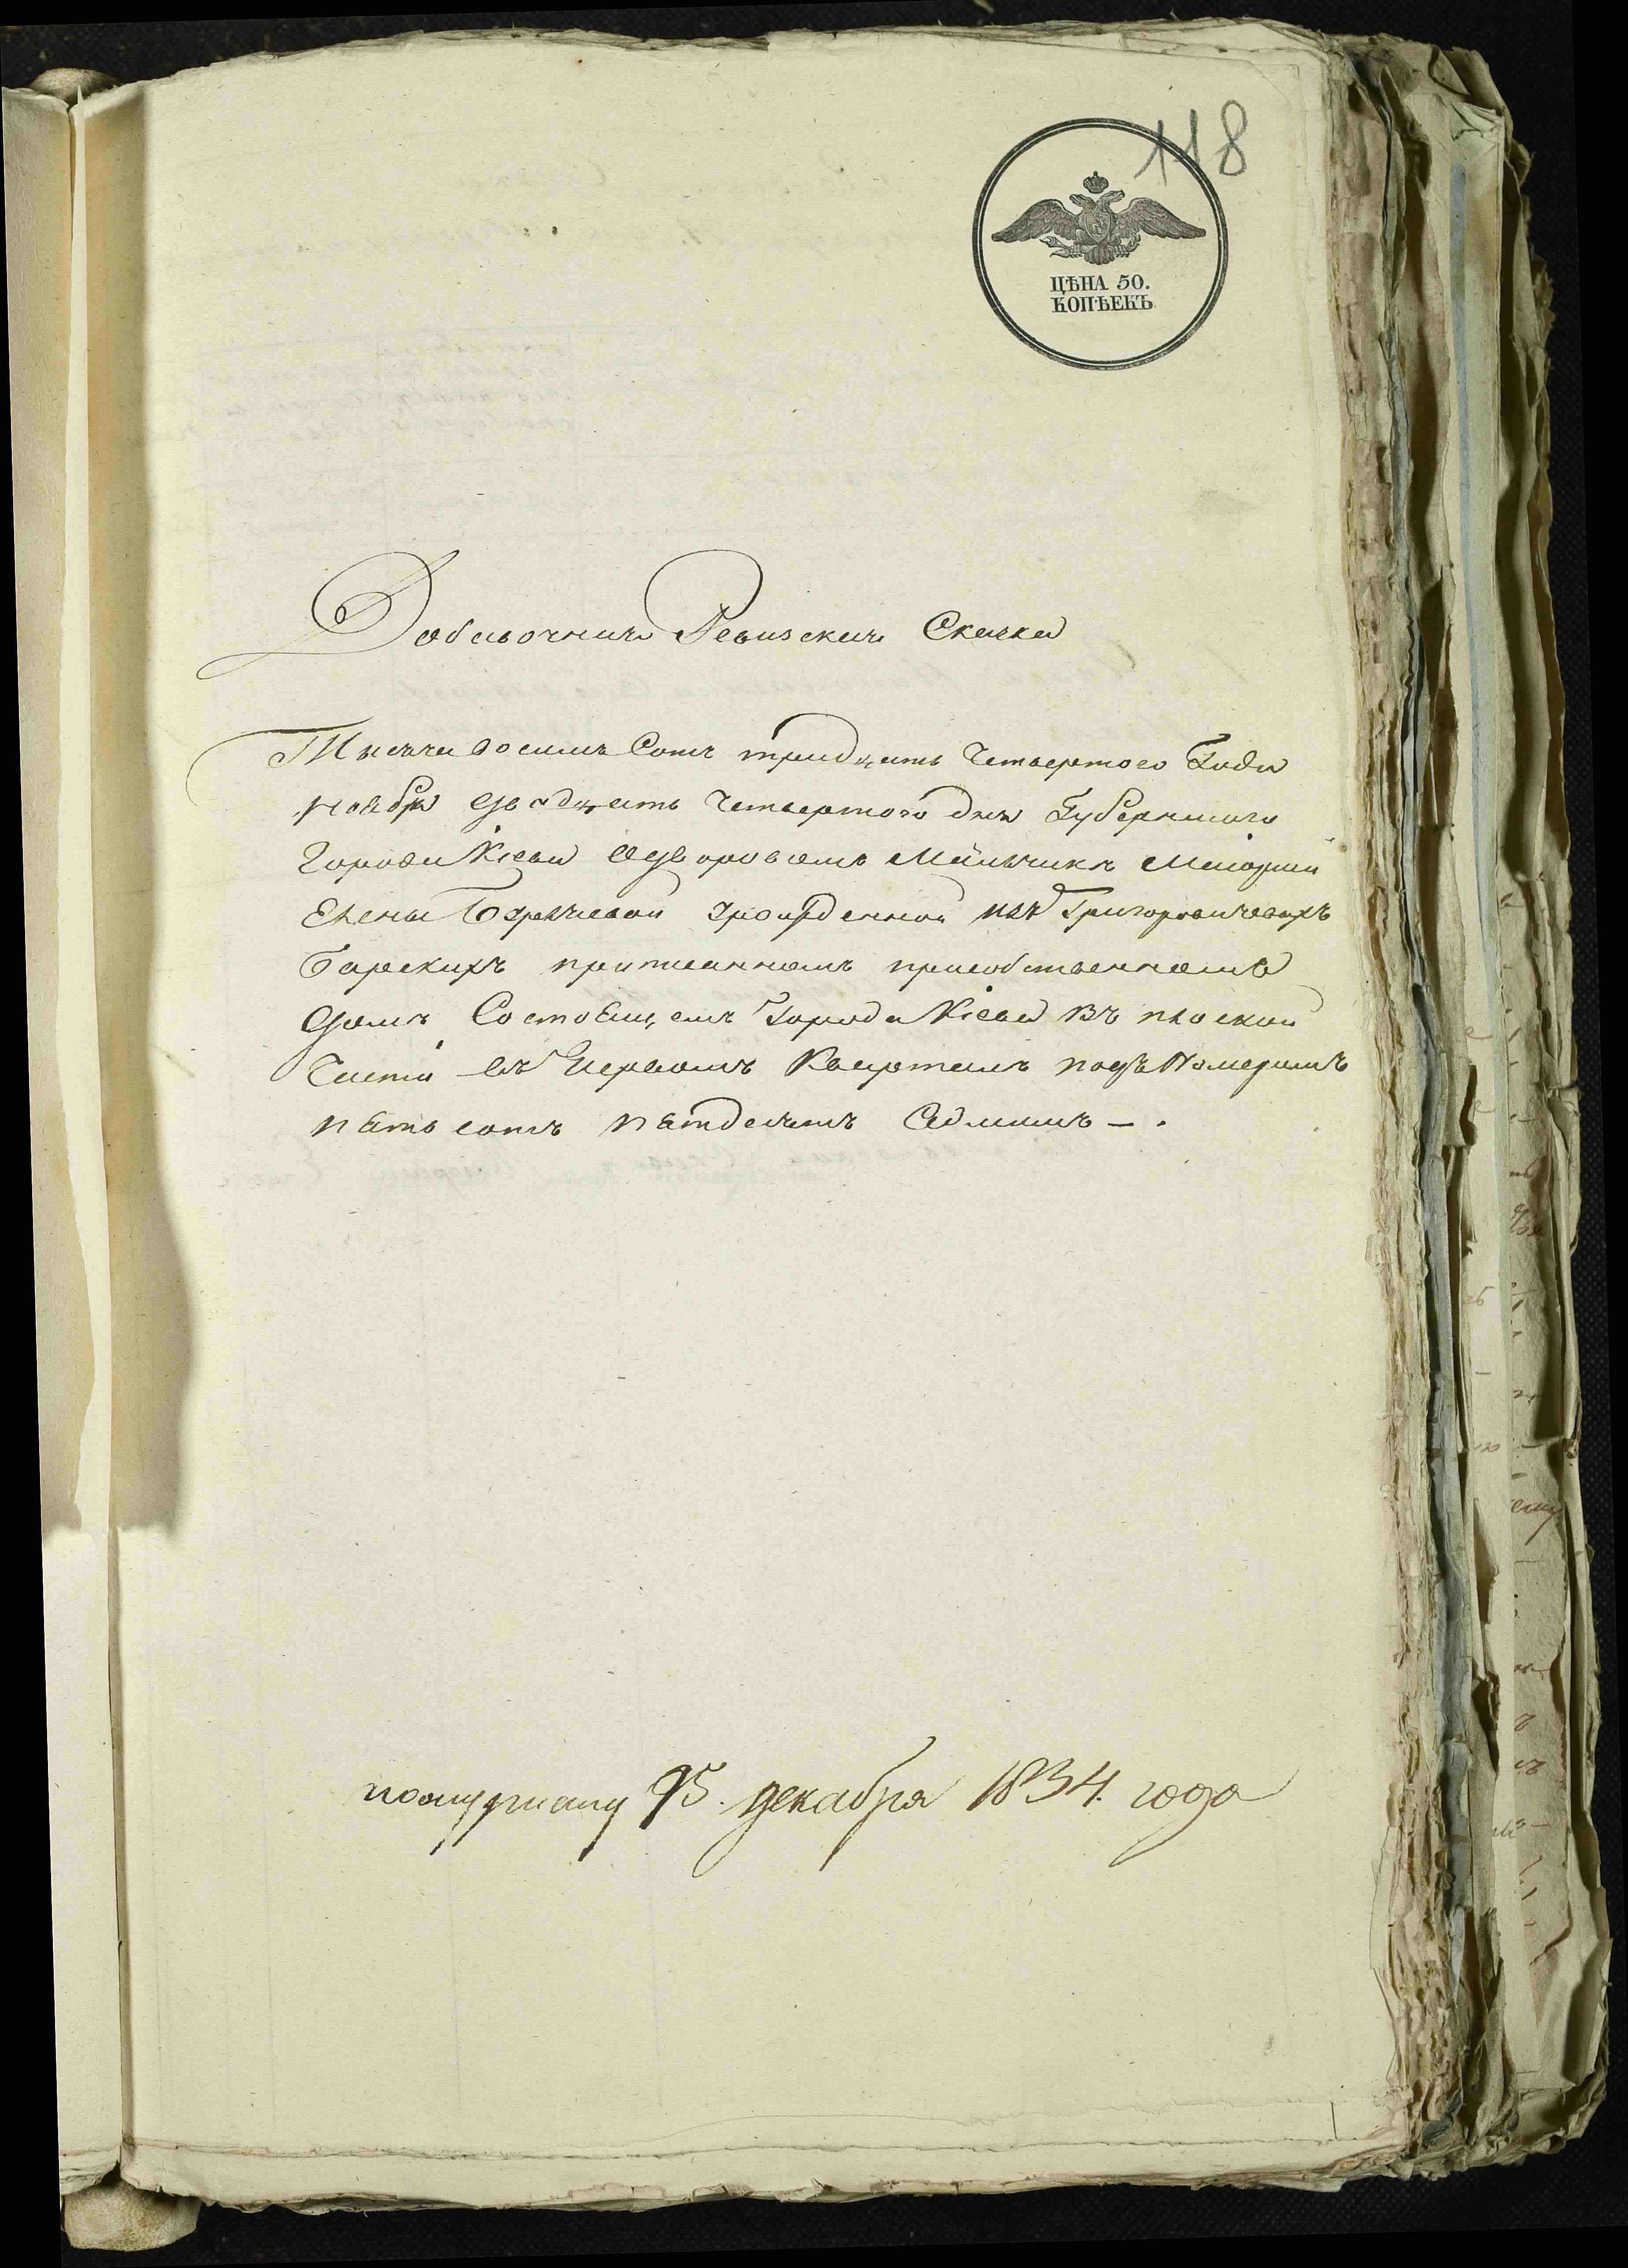 118
ЦѢНА 50.
КОПѢЕКЪ
Добавочная Ревизская Скаска
Тысяча восимъ Сотъ тридцать Четвертого Года
Ноября двадцать Четвертого дня Губернскаго
Города Кіева Одворовомъ Мальчикѣ Маіорши
Елены урожденной изъ Григоровичевыхъ
Барскихъ приписанномъ присобственномъ
Домѣ Состоящемъ Города Кіева въ плоской
Части въ Первомъ Квартале подъ Номеромъ
пять сотъ пятдесятъ Седмымъ —.
15. декабря 1834. года